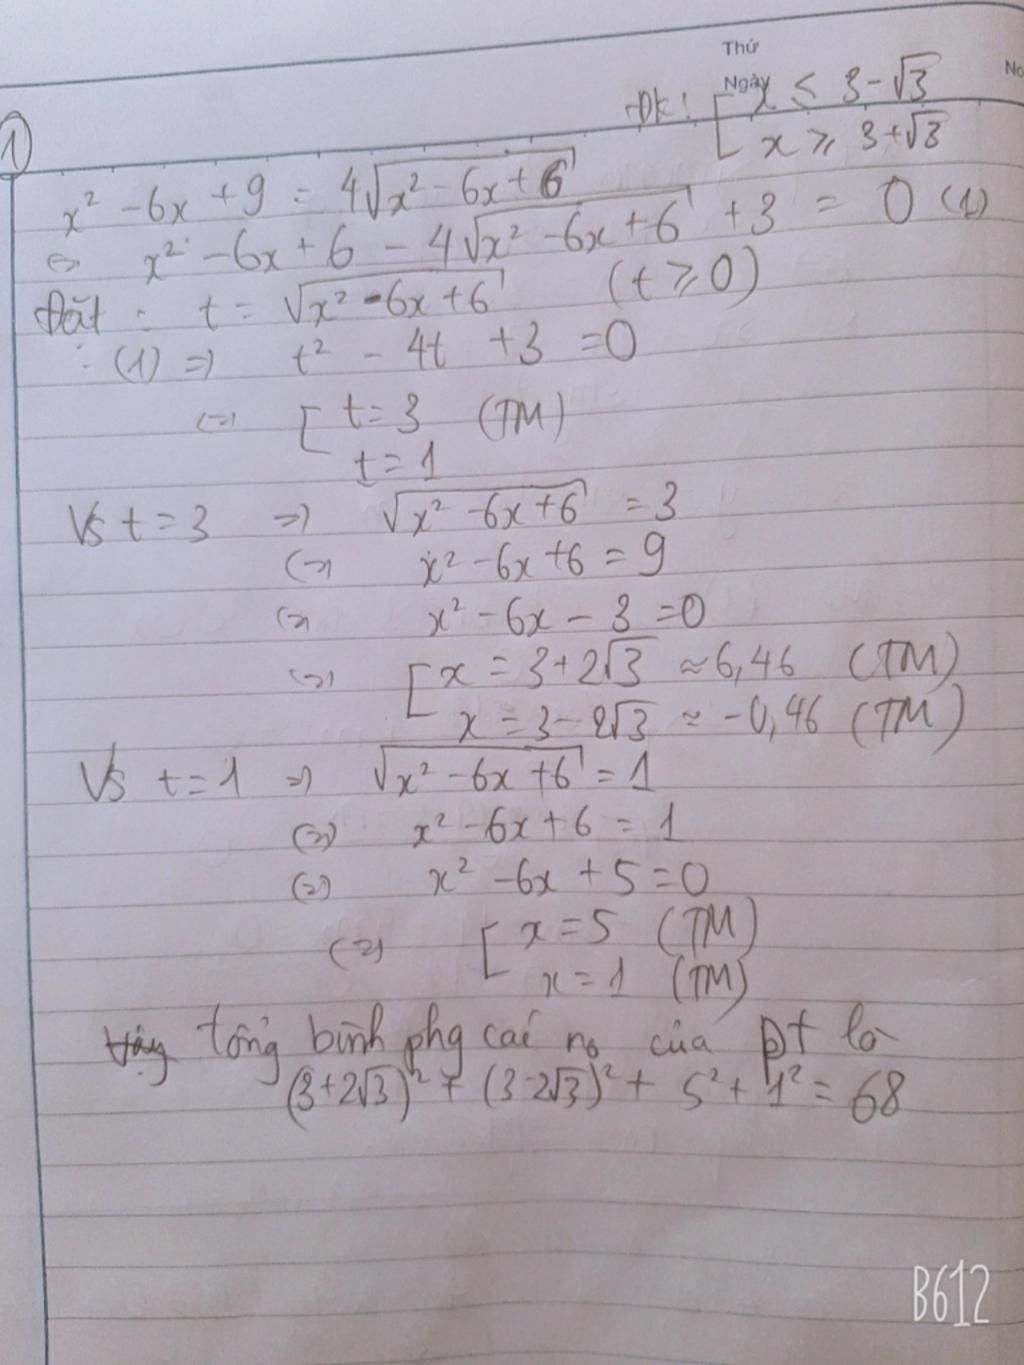 Thứ
Ngày
No
1
ĐK: [ x ≤ 3 - √3
x ≥ 3 + √3
x² - 6x + 9 = 4√x² - 6x + 6
⇔ x² - 6x + 6 - 4√x² - 6x + 6 + 3 = 0 (1)
Đặt : t = √x² - 6x + 6 (t ≥ 0)
: (1) ⇒ t² - 4t + 3 = 0
⇔ [ t = 3 (TM)
t = 1
Vs t = 3 ⇒ √x² - 6x + 6 = 3
⇔ x² - 6x + 6 = 9
⇔ x² - 6x - 3 = 0
⇔ [ x = 3 + 2√3 ≈ 6,46 (TM)
x = 3 - 2√3 ≈ -0,46 (TM)
Vs t = 1 ⇒ √x² - 6x + 6 = 1
⇔ x² - 6x + 6 = 1
⇔ x² - 6x + 5 = 0
⇔ [ x = 5 (TM)
x = 1 (TM)
Vậy tổng bình phg các no của pt là
(3 + 2√3)² + (3 - 2√3)² + 5² + 1² = 68
B612